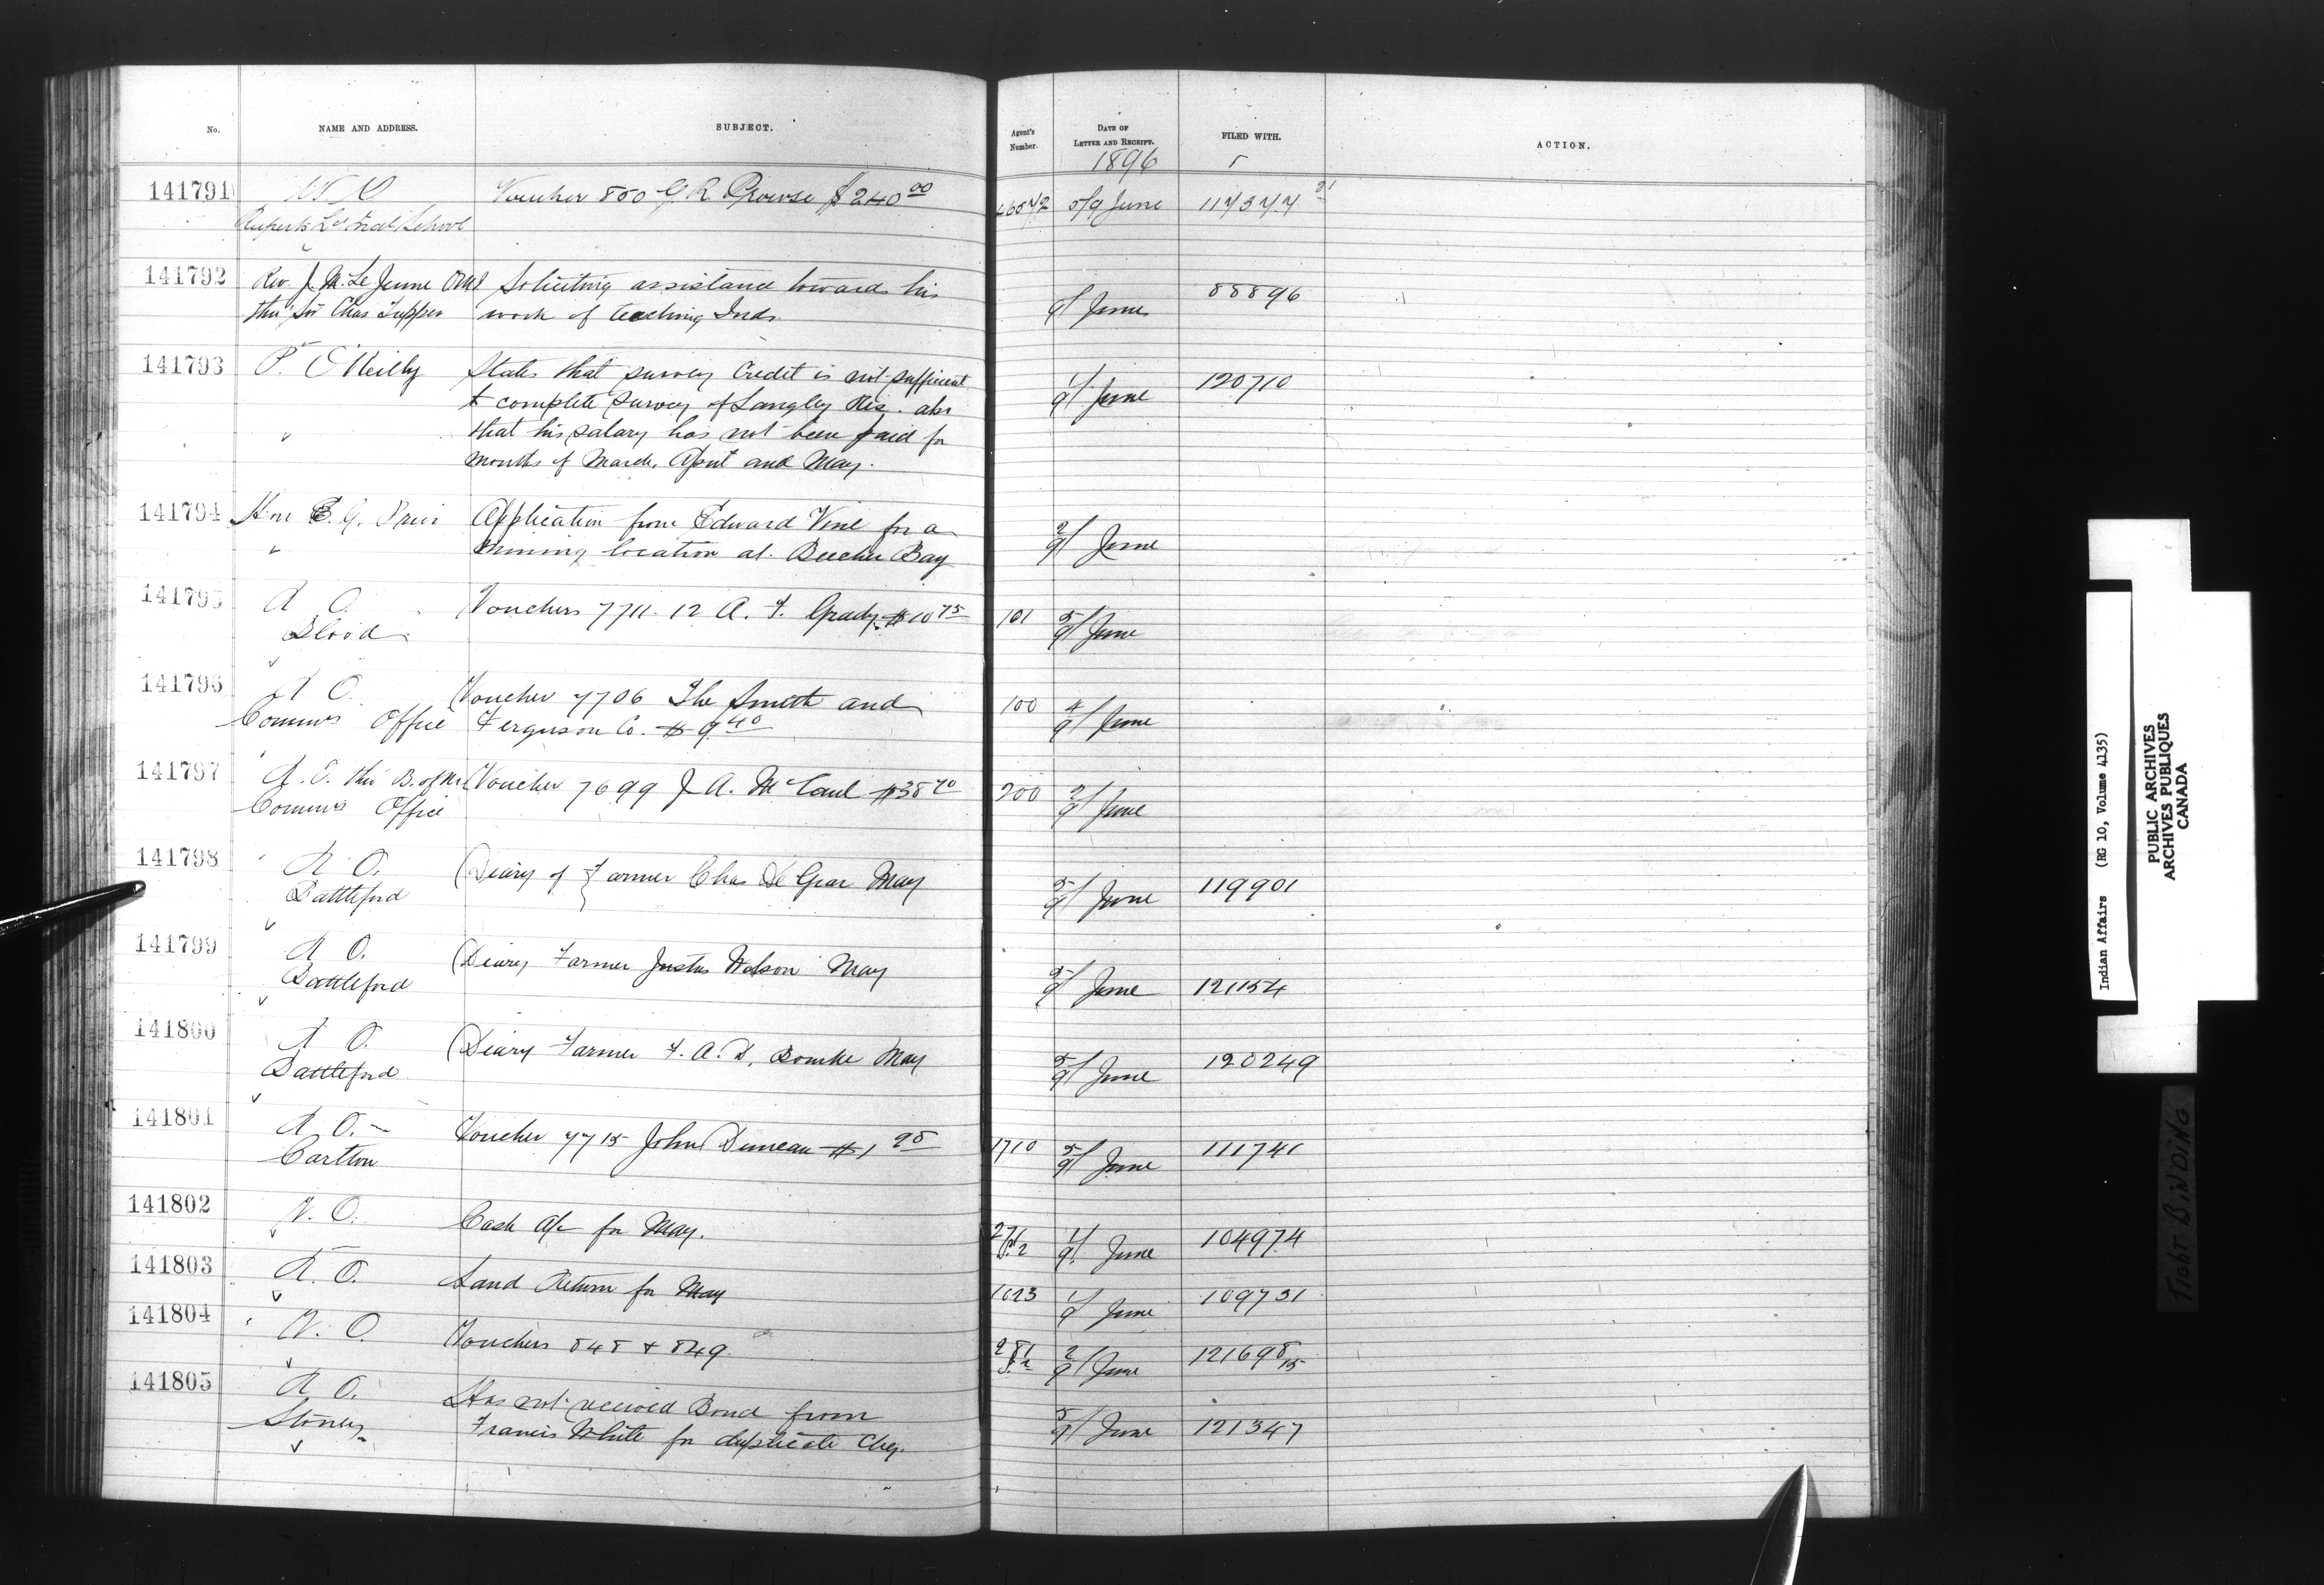 No. NAME AND ADDRESS. SUBJECT. Agent's Number. DATE OF LETTER AND RECEIPT. FILED WITH. ACTION.
1896
141791 W O Voucher 850 G R Prowse $240 00 5/9 June 117377
Ruperts Ld Indl School
141792 Rev. J. M. Le Jeune OMI Soliciting assistance towards his 9/ June 88896
thro' Sir Chas Tupper work of teaching Inds
141793 P. O'Reilly States that survey Credit is not sufficient 1/9 June 120710
to complete survey of Langley Res. also
that his salary has not been paid for
months of March, April and May.
141794 Hon E. G. Prior Application from Edward Vine for a 2/9 June
mining location at Beecher Bay
141795 R O. Vouchers 7711-12 A. F. Grady $10 75 101 5/9 June
Blood
141796 R O. Voucher 7706 The Smith and 100 4/9 June
Commrs Office Ferguson Co. $9 40
141797 R. O. thro' B. of M. Voucher 7699 J A. McCaul $38 70 200 2/9 June
Commrs Office
141798 R O. Diary of Farmer Chas De Gear May 5/9 June 119901
Battleford
141799 R O. Diary Farmer Justus Wilson May 5/9 June 121154
Battleford
141800 R O. Diary Farmer F. A. D. Bourke May 5/9 June 120249
Battleford
141801 R O. Voucher 7715 John Duncan $1 25 1710 5/9 June 111741
Carlton
141802 W. O. Cash A/c for May. 1/9 June 104974
141803 R. O. Land Return for May 1023 1/9 June 109731
141804 W. O. Vouchers 848 & 849 281 2/9 June 121698/15
141805 R O. Has not received Bond from 5/9 June 121347
Stoney Francis White for duplicate Cheq.
Indian Affairs (RG 10, Volume 4135)
PUBLIC ARCHIVES
ARCHIVES PUBLIQUES
CANADA
TIGHT BINDING